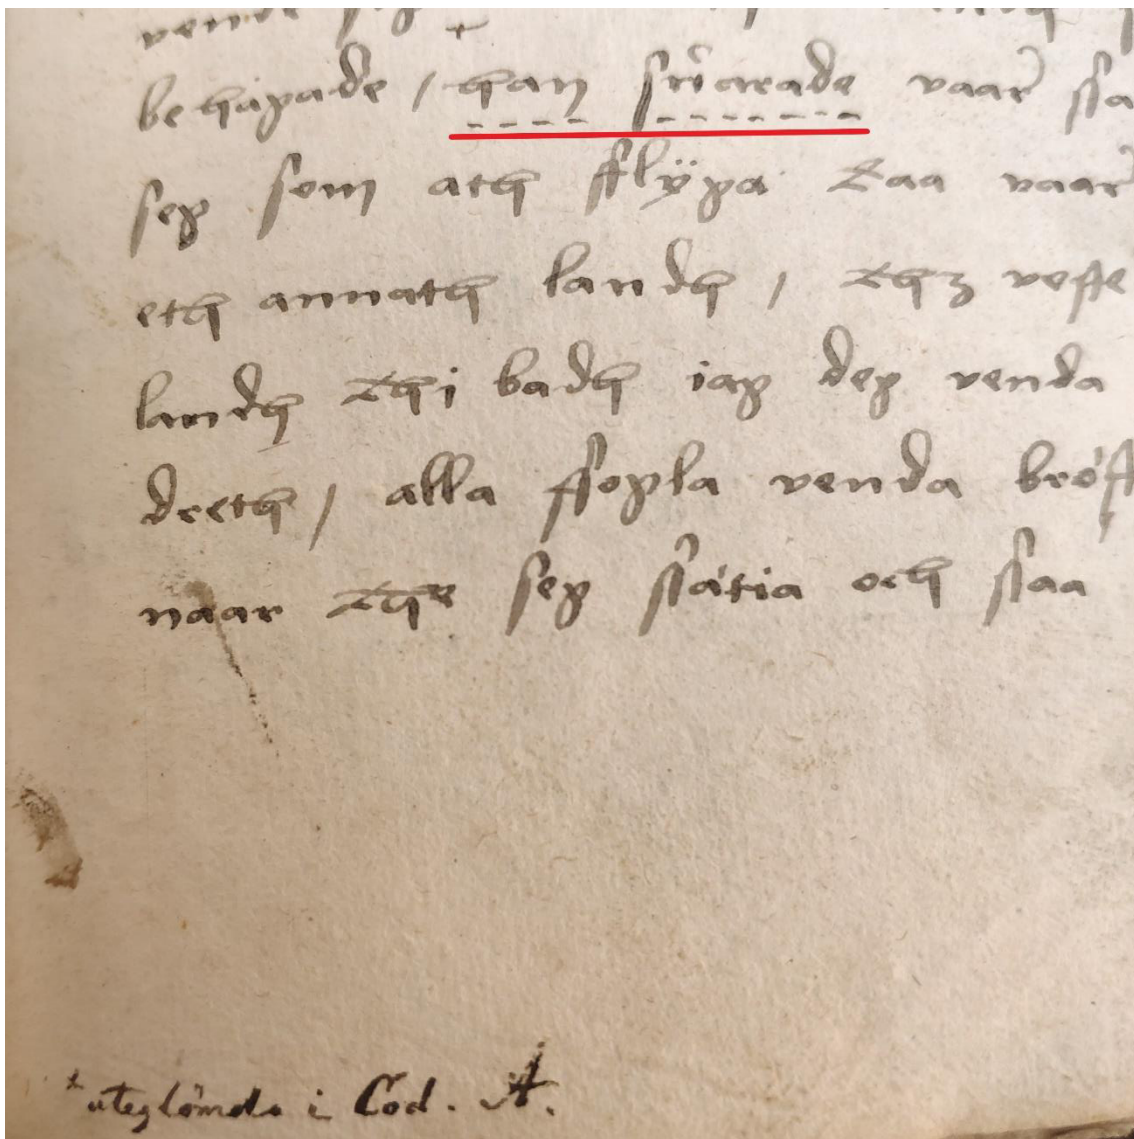 +
behagade / han swarade vaar
seg som ath fflÿga taa vaar
eth annath landh / thz
landh thi badh iag deg venda
dreth / alla ffogla venda
naar the seg sätia och staa
+ uteglömda i Cod. A.